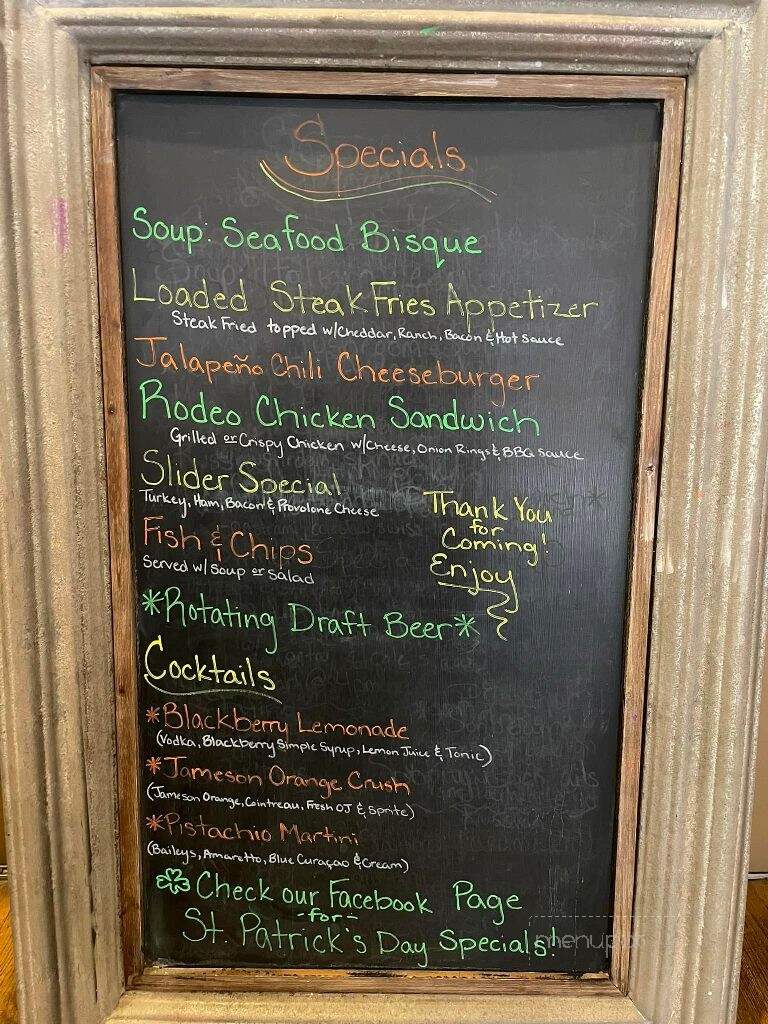 Specials
Soup: Seafood Bisque
Loaded Steak Fries Appetizer
Steak Fried topped w/Cheddar, Ranch, Bacon & Hot sauce
Jalapeño Chili Cheeseburger
Rodeo Chicken Sandwich
Grilled or Crispy Chicken w/Cheese, Onion Rings & BBQ sauce
Slider Special
Turkey, Ham, Bacon & Provolone Cheese
Fish & Chips
Served w/ Soup or Salad
Thank You
for
Coming!
Enjoy
*Rotating Draft Beer*
Cocktails
*Blackberry Lemonade
(Vodka, Blackberry Simple Syrup, Lemon Juice & Tonic)
*Jameson Orange Crush
(Jameson Orange, Cointreau, Fresh OJ & Sprite)
*Pistachio Martini
(Baileys, Amaretto, Blue Curaçao & Cream)
☘Check our Facebook Page
-for-
St. Patrick's Day Specials!